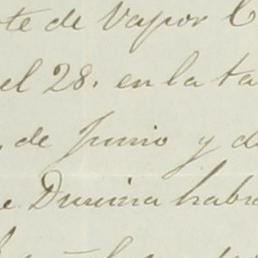 te de Vapor C
el 28. en la ta
de Junio y de
e Dunina habr